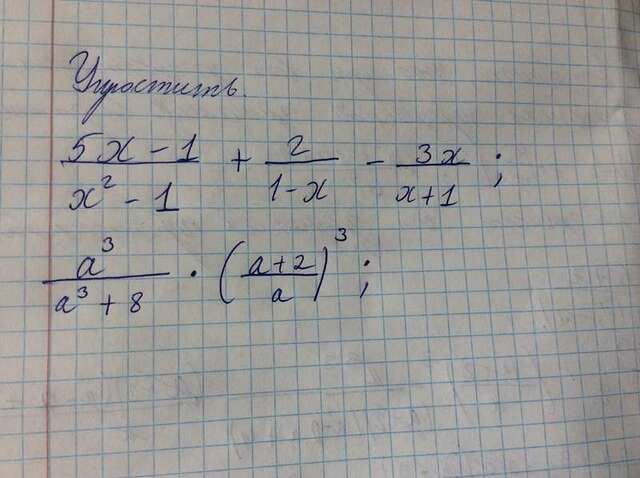 Упростить.
(5x - 1)/(x² - 1) + 2/(1-x) - 3x/(x+1) ;
a³/(a³ + 8) · ((a+2)/a)³ ;